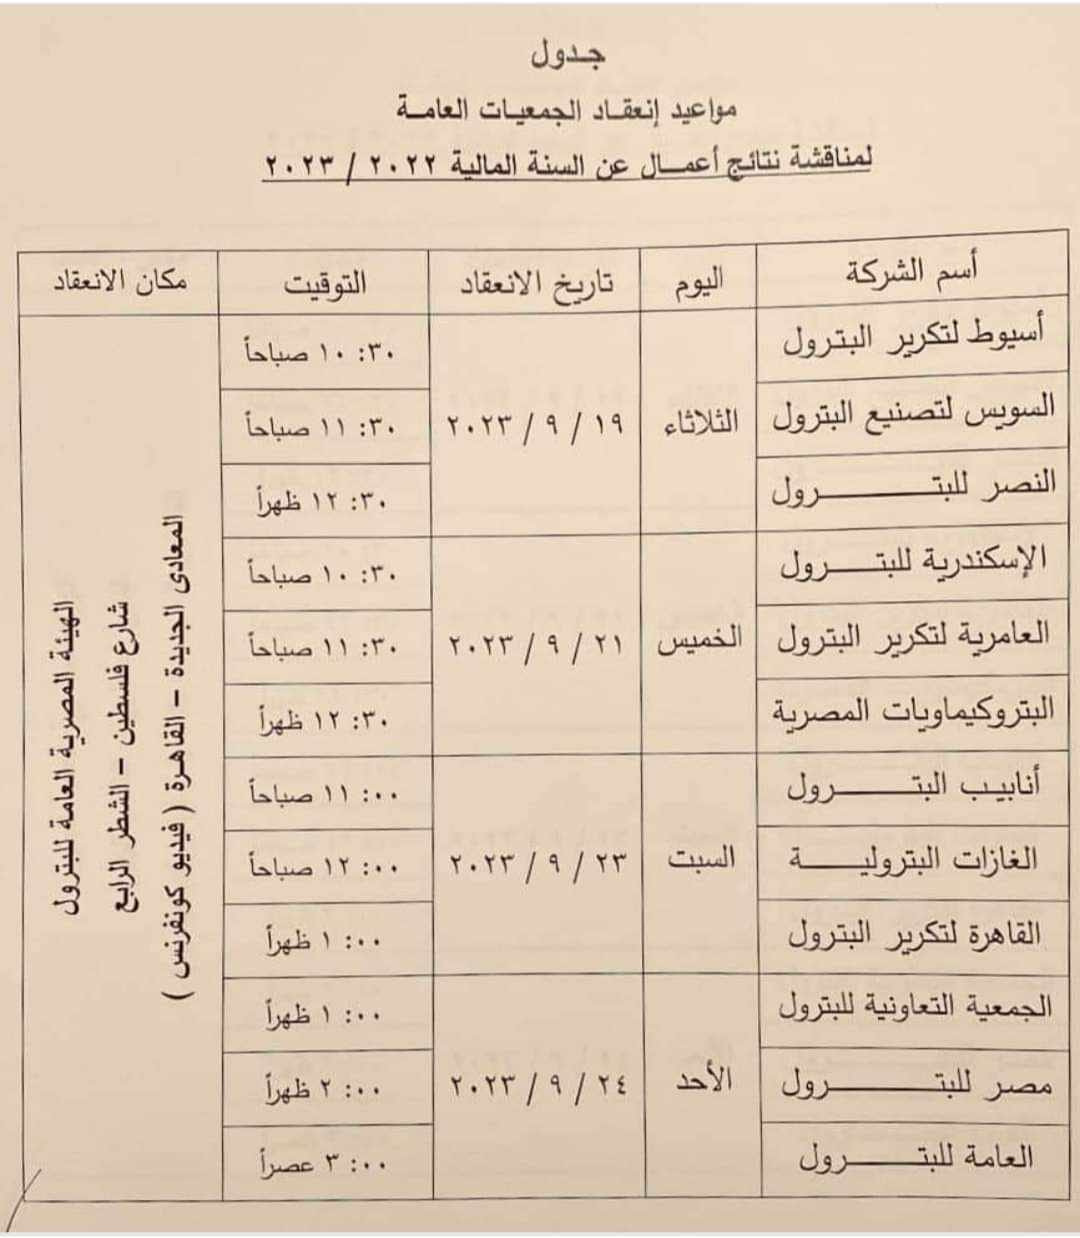 جدول
مواعيد إنعقاد الجمعيات العامة
لمناقشة نتائج أعمال عن السنة المالية ٢٠٢٢ / ٢٠٢٣
أسم الشركة اليوم تاريخ الانعقاد التوقيت مكان الانعقاد
أسيوط لتكرير البترول ١٠ :٣٠ صباحاً
السويس لتصنيع البترول الثلاثاء ١٩ / ٩ / ٢٠٢٣ ١١ :٣٠ صباحاً
النصر للبترول ١٢ :٣٠ ظهراً
الإسكندرية للبترول ١٠ :٣٠ صباحاً
العامرية لتكرير البترول الخميس ٢١ / ٩ / ٢٠٢٣ ١١ :٣٠ صباحاً
البتروكيماويات المصرية ١٢ :٣٠ ظهراً
أنابيب البترول ١١ :٠٠ صباحاً
الغازات البترولية السبت ٢٣ / ٩ / ٢٠٢٣ ١٢ :٠٠ صباحاً
القاهرة لتكرير البترول ١ :٠٠ ظهراً
الجمعية التعاونية للبترول ١ :٠٠ ظهراً
مصر للبترول الأحد ٢٤ / ٩ / ٢٠٢٣ ٢ :٠٠ ظهراً
العامة للبترول ٣ :٠٠ عصراً
الهيئة المصرية العامة للبترول
شارع فلسطين – الشطر الرابع
المعادى الجديدة – القاهرة ( فيديو كونفرنس )